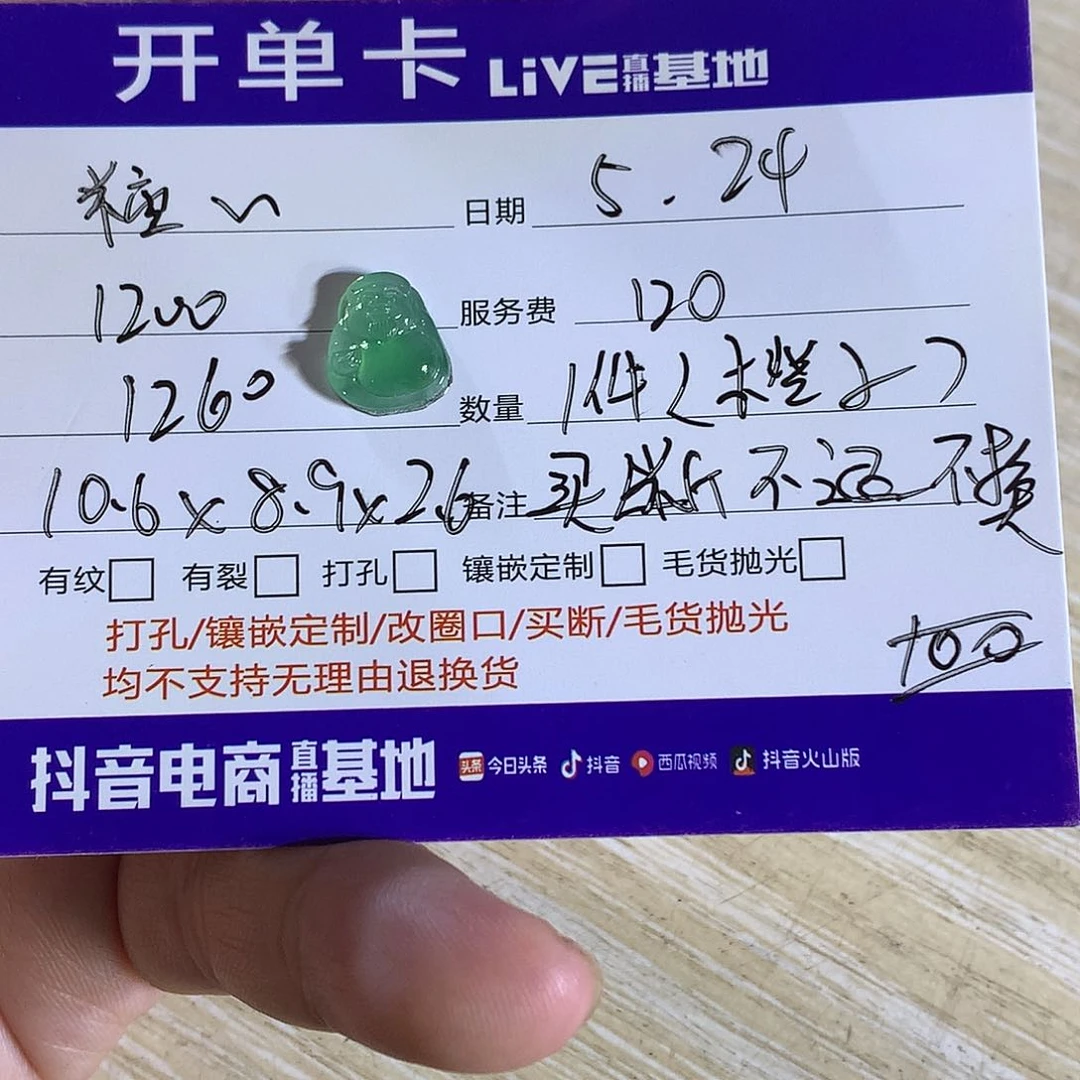 开单卡 LiVE直播基地
糖 日期 5.24
1200 服务费 120
1260 数量 1件( )
10.6 x 8.9 x 2.6 备注 买断不退不换
有纹 有裂 打孔 镶嵌定制 毛货抛光
打孔/镶嵌定制/改圈口/买断/毛货抛光
均不支持无理由退换货
抖音电商直播基地 头条 今日头条 抖音 西瓜视频 抖音火山版